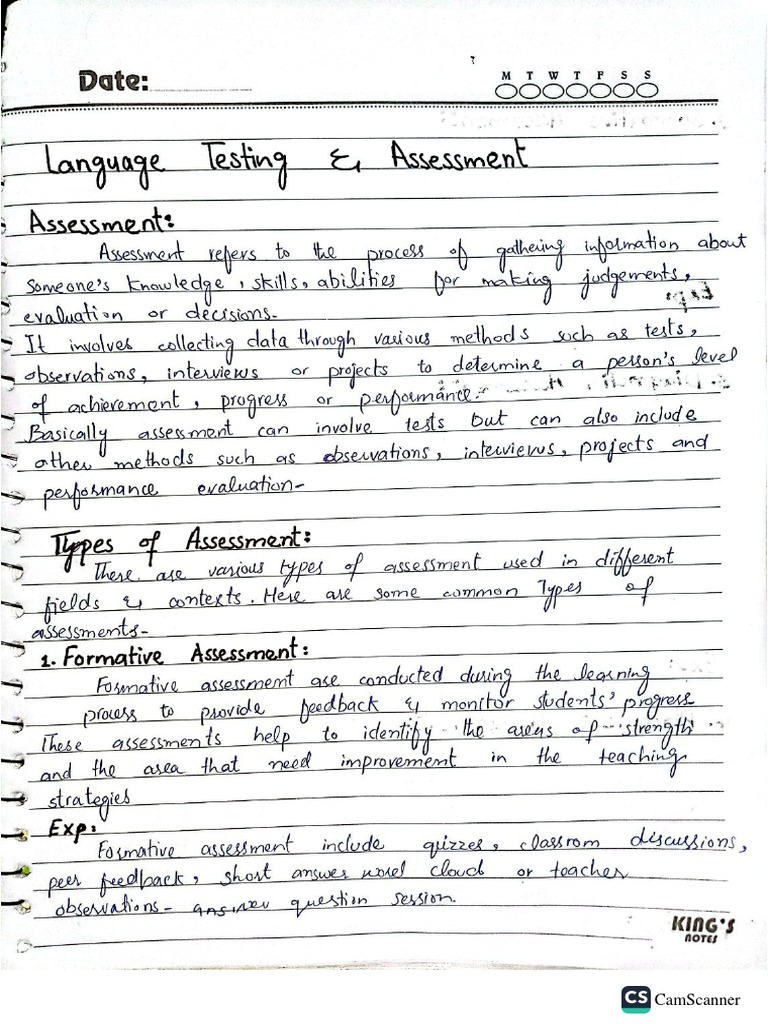 Date:
M T W T F S S
Language Testing & Assessment
Assessment:
Assessment refers to the process of gathering information about
someone's knowledge, skills, abilities for making judgements,
evaluation or decisions.
It involves collecting data through various methods such as tests,
observations, interviews or projects to determine a person's level
of achievement, progress or performance.
Basically assessment can involve tests but can also include
other methods such as observations, interviews, projects and
performance evaluation-
Types of Assessment:
There are various types of assessment used in different
fields & contexts. Here are some common Types of
assessments-
1. Formative Assessment:
Formative assessment are conducted during the learning
process to provide feedback & monitor students' progress
These assessments help to identify the areas of strength
and the area that need improvement in the teaching
strategies
Exp:
Formative assessment include quizzes, classrom discussions,
peer feedback, short answer word cloud or teacher
observations- answer question session.
KING'S
NOTES
CS CamScanner